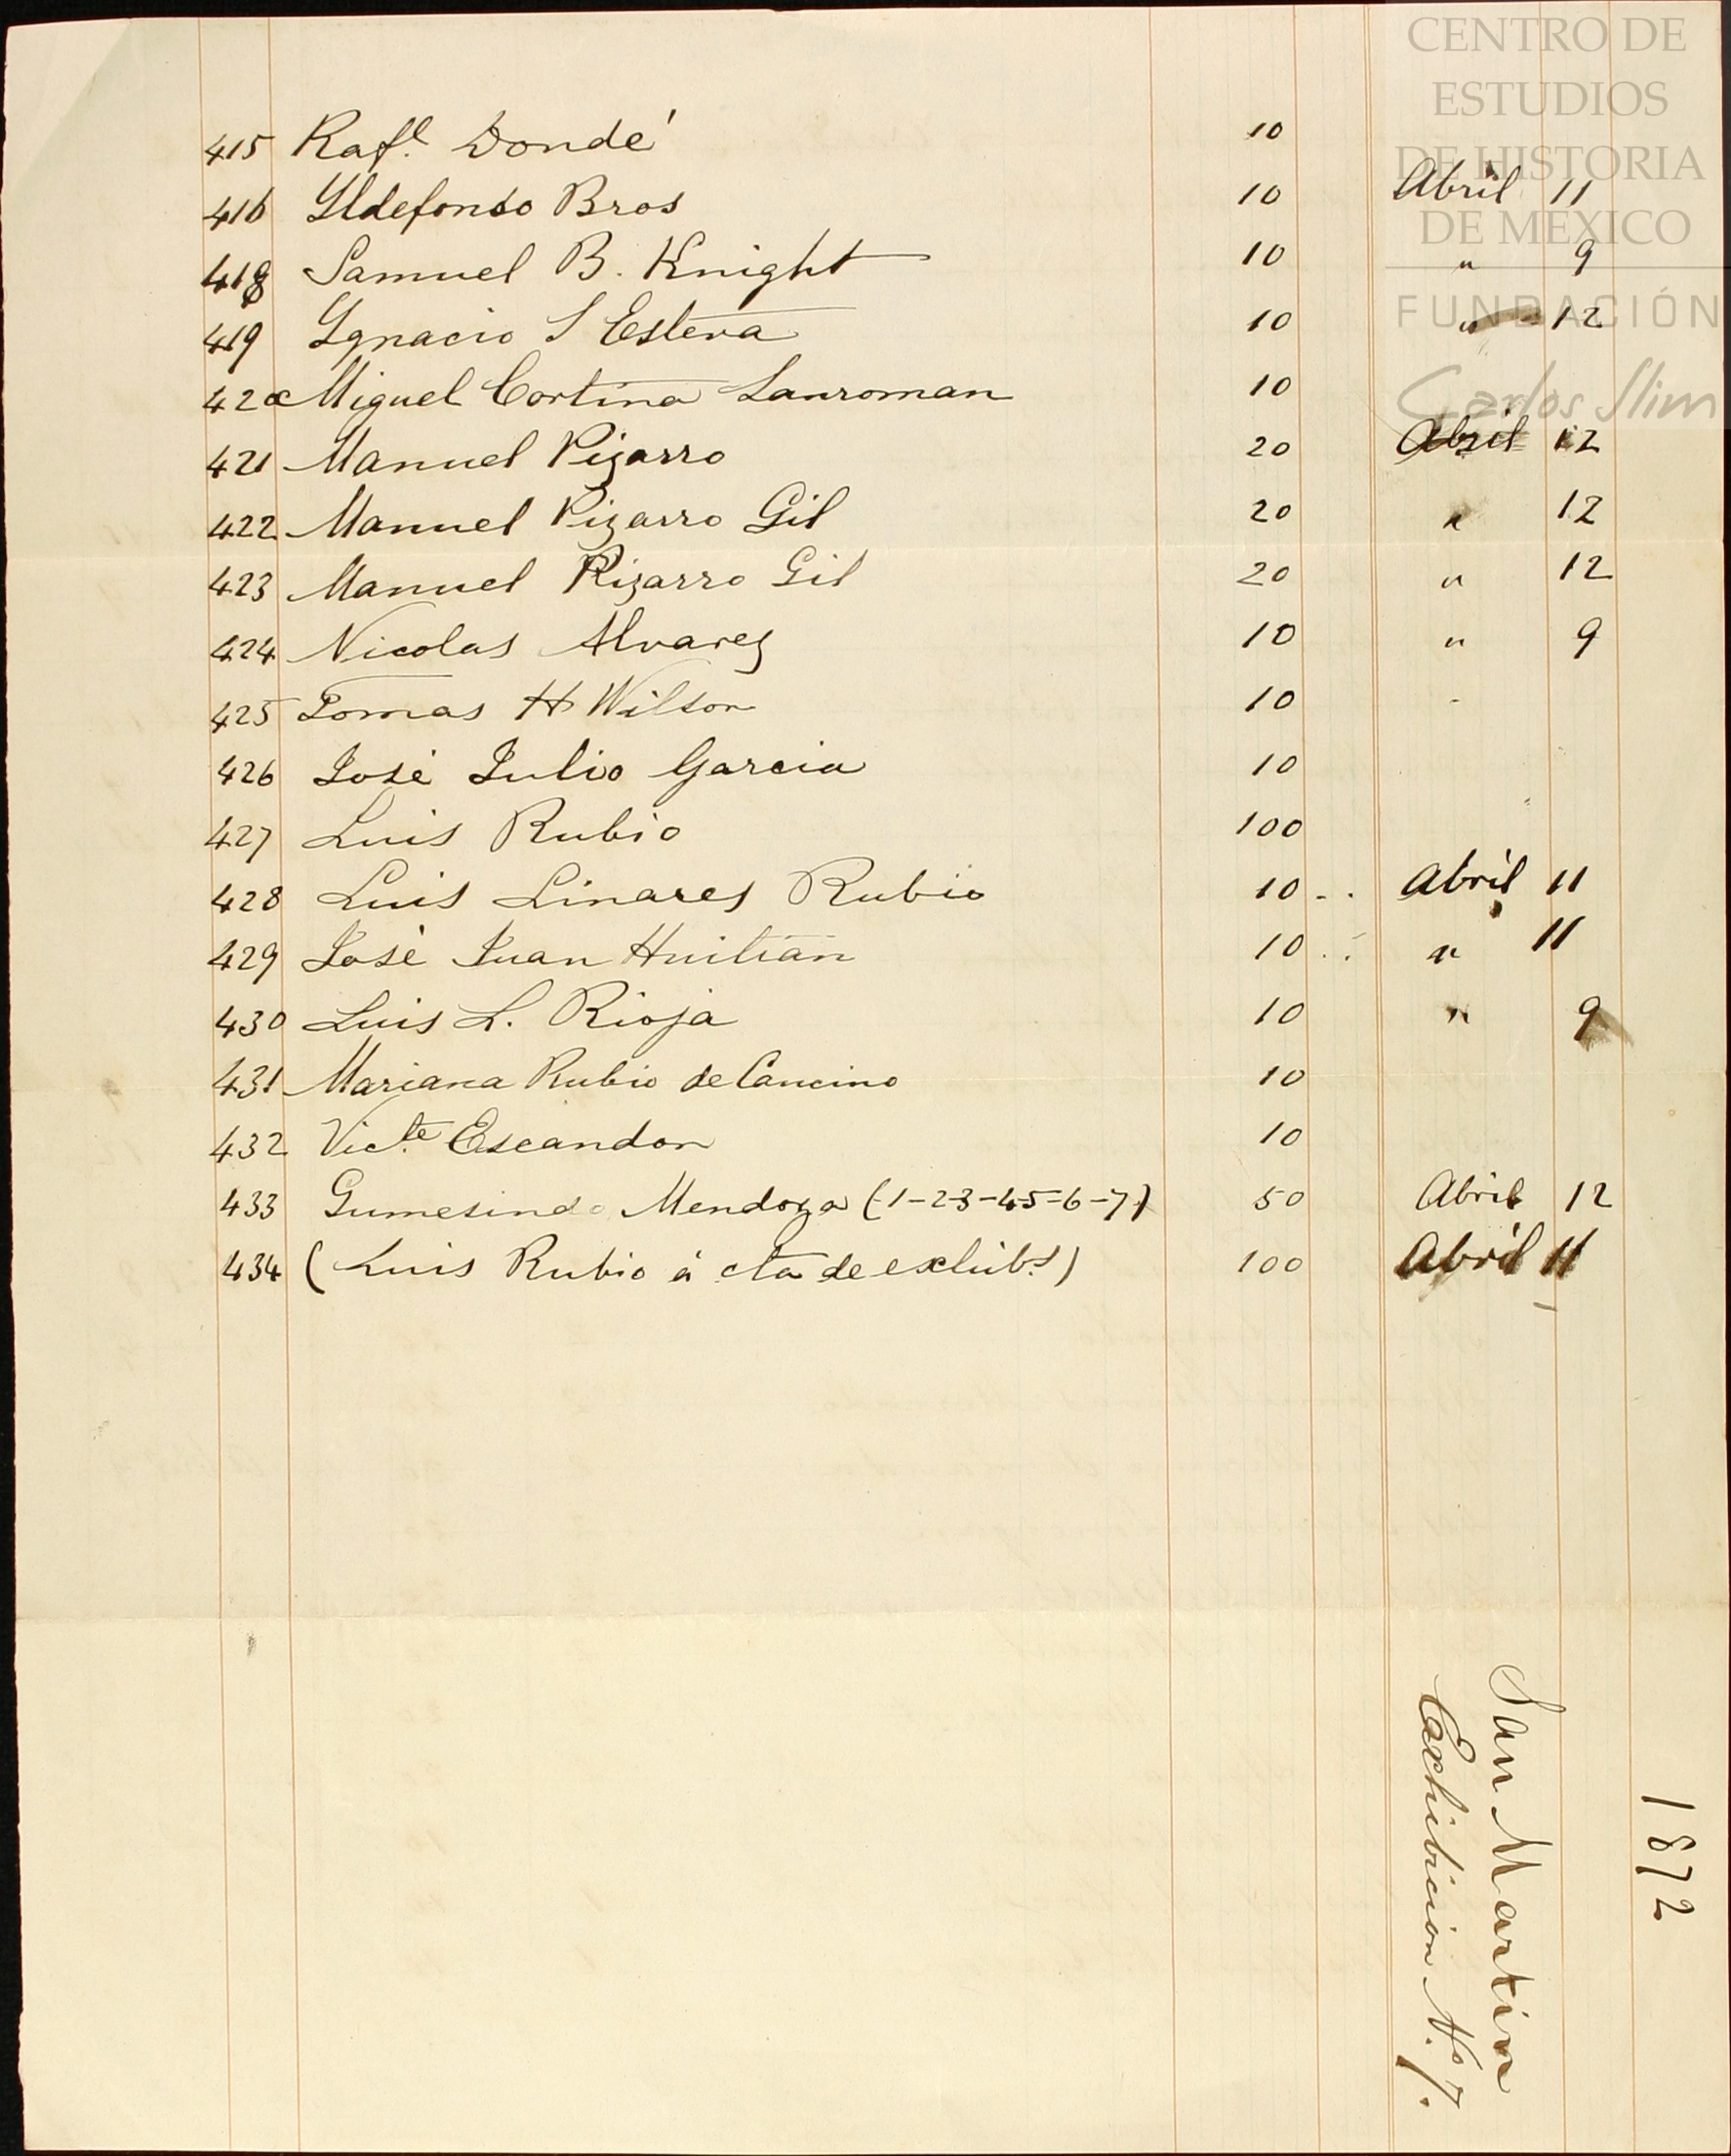 CENTRO DE
ESTUDIOS
DE HISTORIA
DE MEXICO
FUNDACIÓN
Carlos Slim
415 Raf.l Dondé 10
416 Yldefonso Bros 10 Abril 11
418 Samuel B. Knight 10 " 9
419 Ygnacio S Esteva 10 " 12
420 Miguel Cortina Sanroman 10
421 Manuel Pizarro 20 Abril 12
422 Manuel Pizarro Gil 20 " 12
423 Manuel Pizarro Gil 20 " 12
424 Nicolas Alvarez 10 " 9
425 Tomas H Wilson 10
426 José Julio Garcia 10
427 Luis Rubio 100
428 Luis Linares Rubio 10 Abril 11
429 José Juan 10 " 11
430 Luis L. Rioja 10 " 9
431 Mariana Rubio de Cancino 10
432 Vic.te Escandon 10
433 Gumesindo Mendoza (1-2-3-4-5-6-7) 50 Abril 12
434 (Luis Rubio á cta de exhib.s) 100 Abril 11
1872
San Martin
Exchibicion N.o 7.